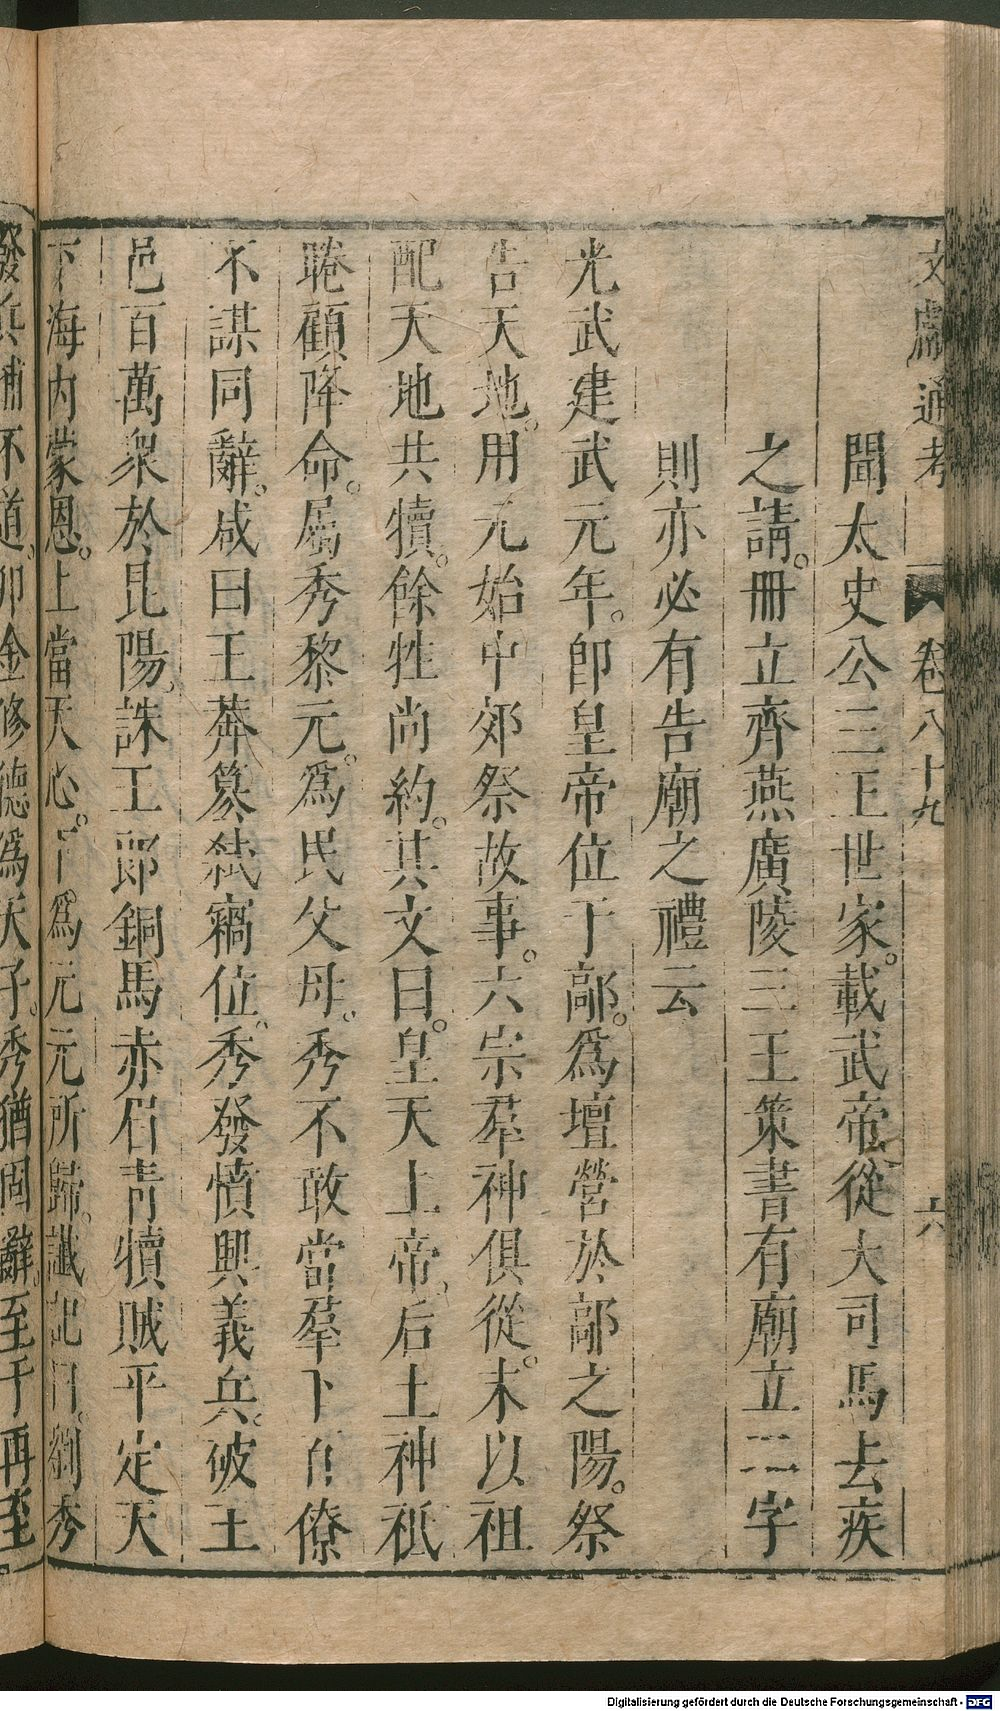 文獻通考 卷八十九 六
聞太史公三王世家。載武帝從大司馬去疾
之請。冊立齊燕廣陵三王策書有廟立二字
則亦必有告廟之禮云
光武建武元年。卽皇帝位于鄗。爲壇營於鄗之陽。祭
告天地。用元始中郊祭故事。六宗羣神俱從。未以祖
配天地共犢。餘牲尚約。其文曰。皇天上帝。后土神祇
睠顧降命。屬秀黎元。爲民父母。秀不敢當羣下百僚
不謀同辭。咸曰王莽篡弒竊位。秀發憤興義兵。破王
邑百萬衆於昆陽。誅王郎銅馬赤眉青犢賊平定天
下海内蒙恩。上當天心。下爲元元所歸。讖記曰。劉秀
發兵捕不道。卯金修德爲天子。秀猶固辭。至于再至
Digitalisierung gefördert durch die Deutsche Forschungsgemeinschaft - DFG